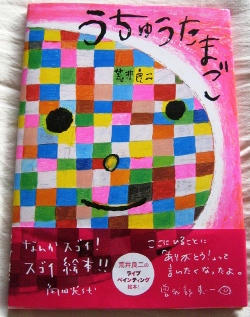 うちゅうたまご
荒井良二
なんかスゴイ!
スゴイ絵本!!
角田光代
荒井良二の
ライブ
ペインティング
絵本!
ここにいることに
「ありがとう!」って
言いたくなったよ。